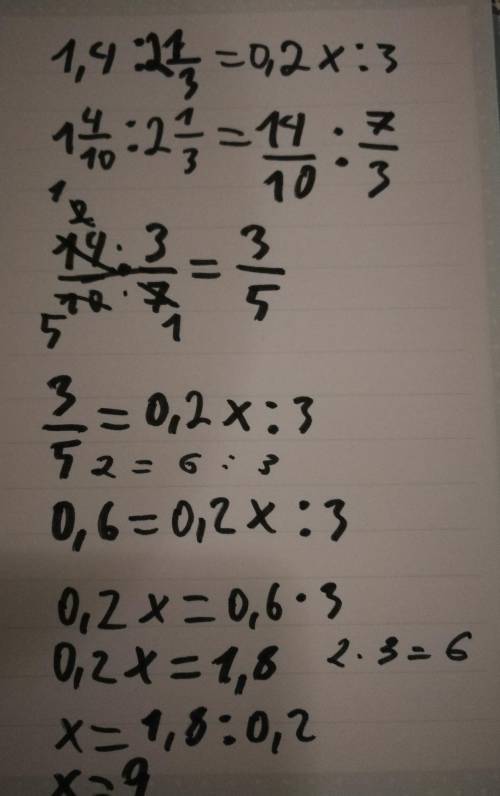 1,4 : 2 1/3 = 0,2x : 3
1 4/10 : 2 1/3 = 14/10 : 7/3
1 2
14 · 3 / 10 · 7 = 3/5
5 1
3/5 = 0,2x : 3
2 = 6 : 3
0,6 = 0,2x : 3
0,2x = 0,6 · 3
0,2x = 1,8
2 · 3 = 6
x = 1,8 : 0,2
x = 9